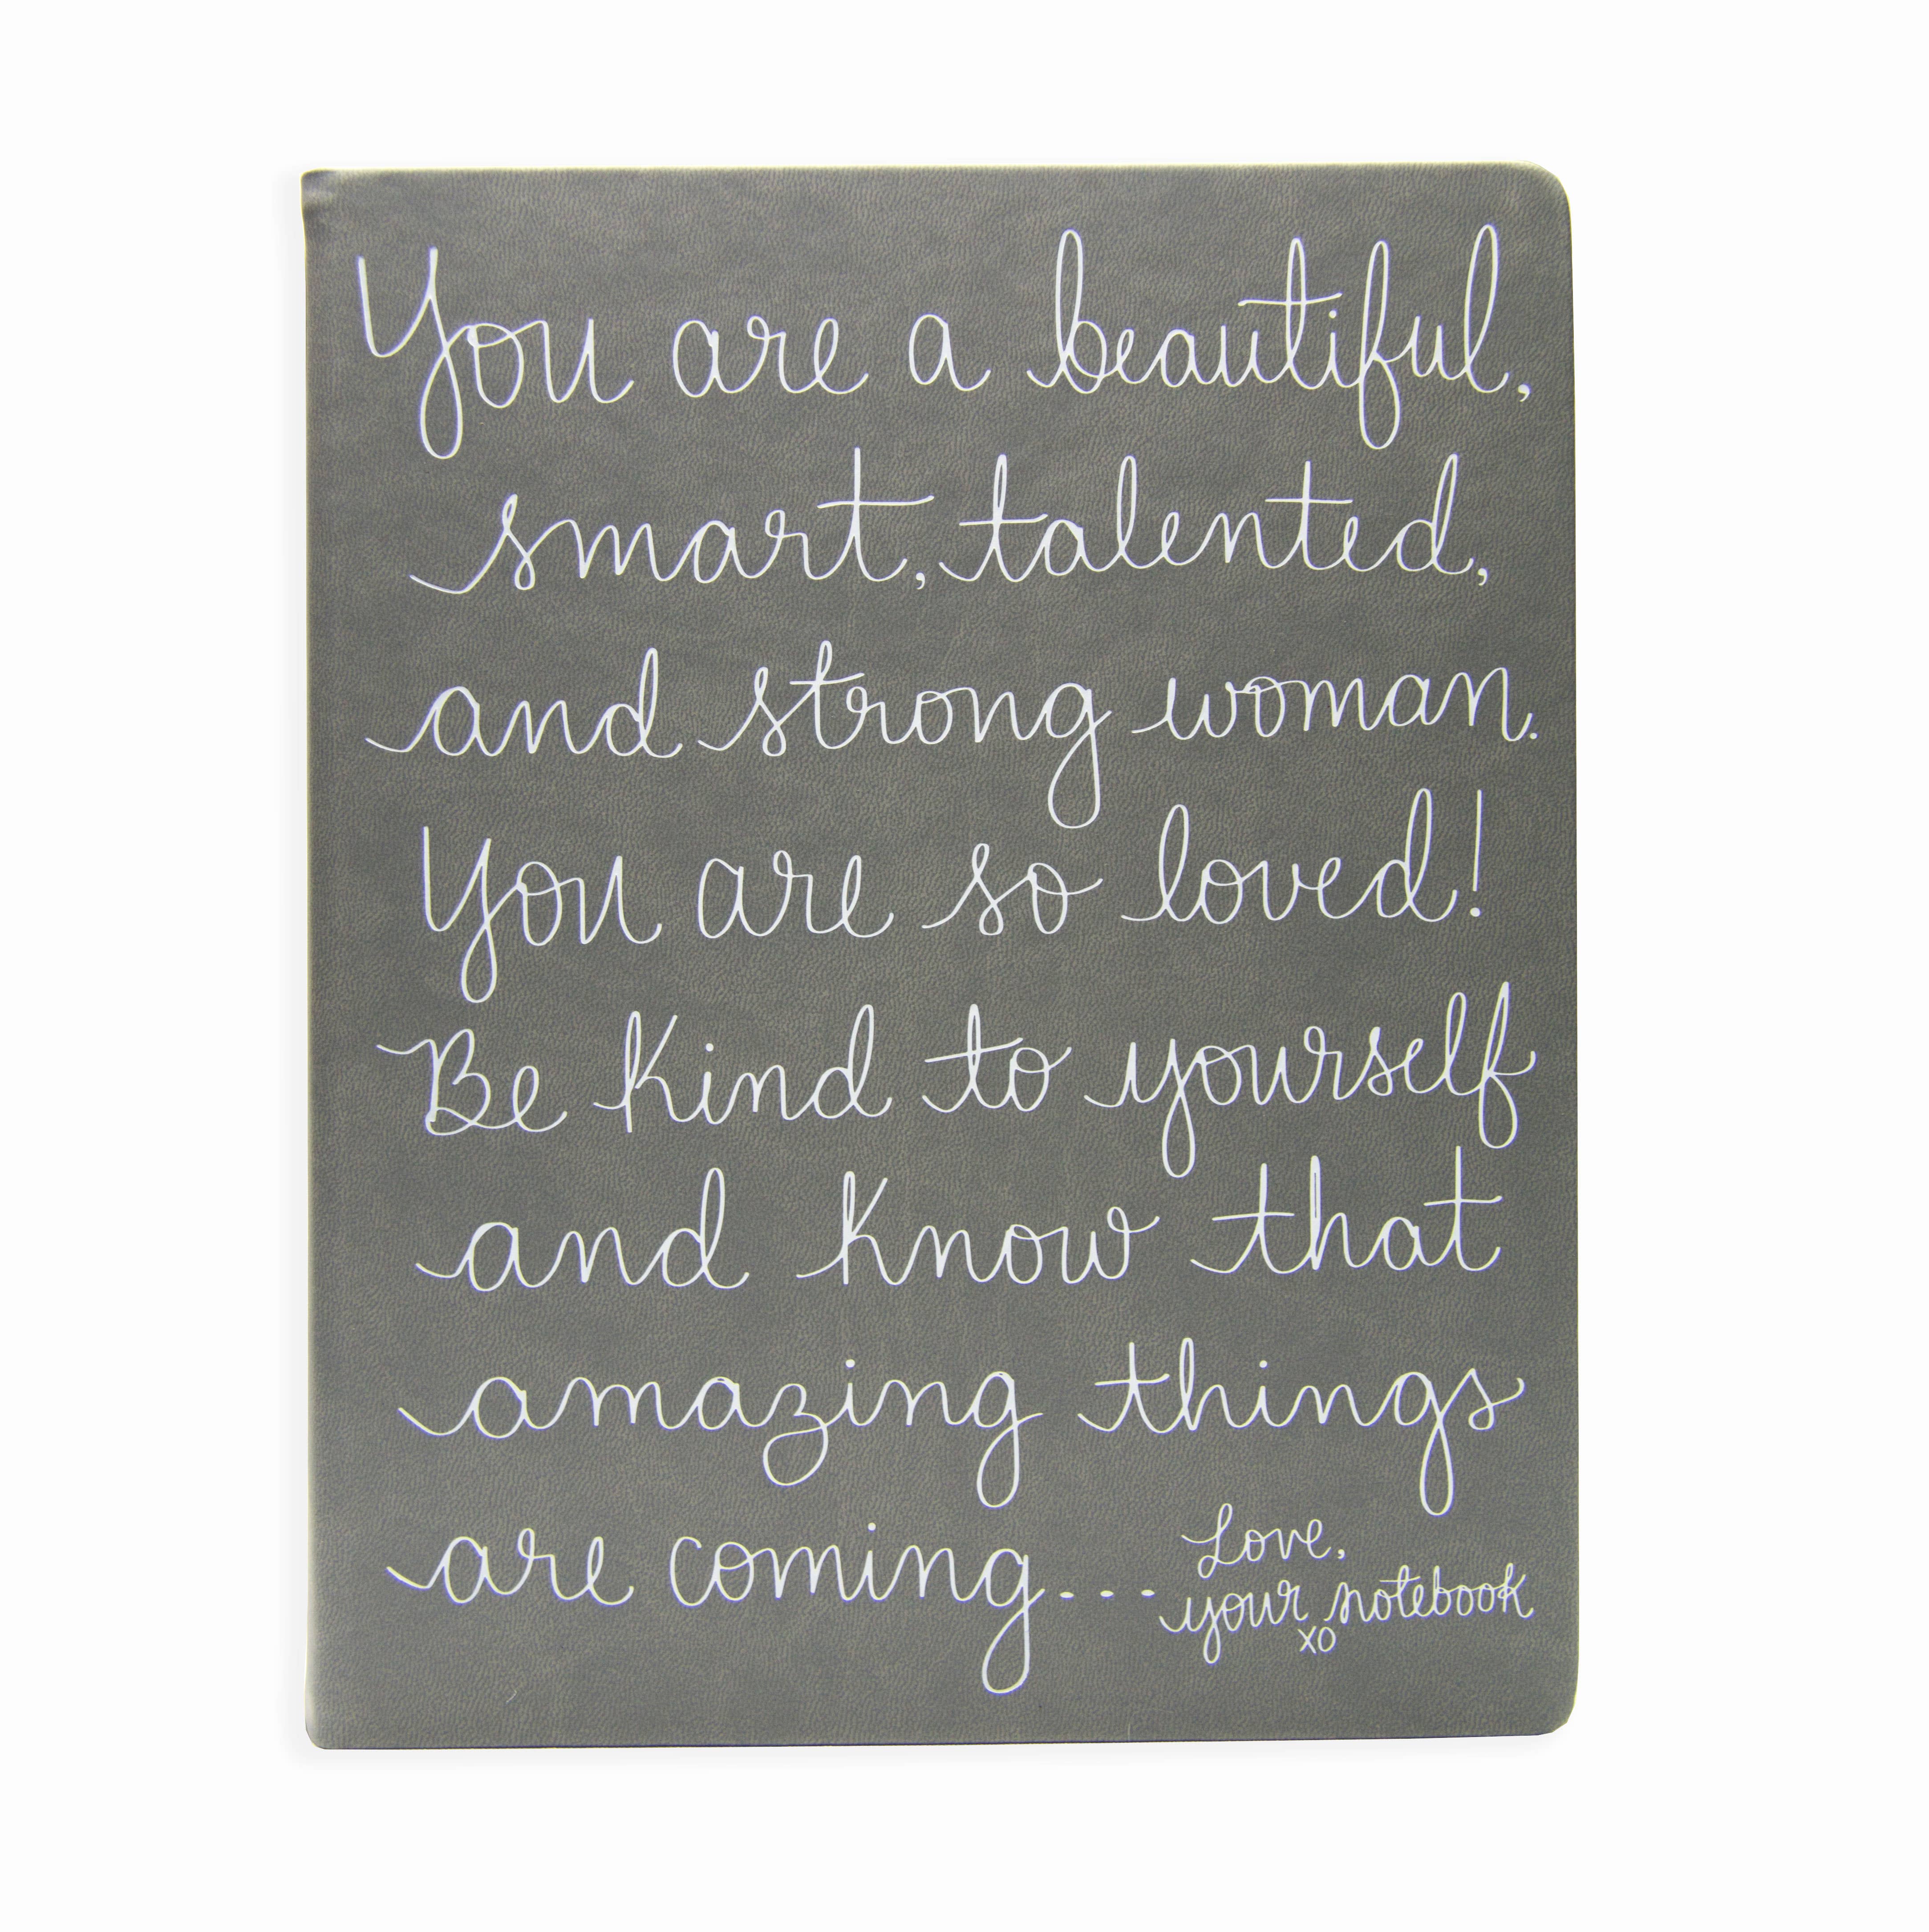 You are a beautiful,
smart, talented,
and strong woman.
You are so loved!
Be kind to yourself
and know that
amazing things
are coming...
Love,
your notebook
XO